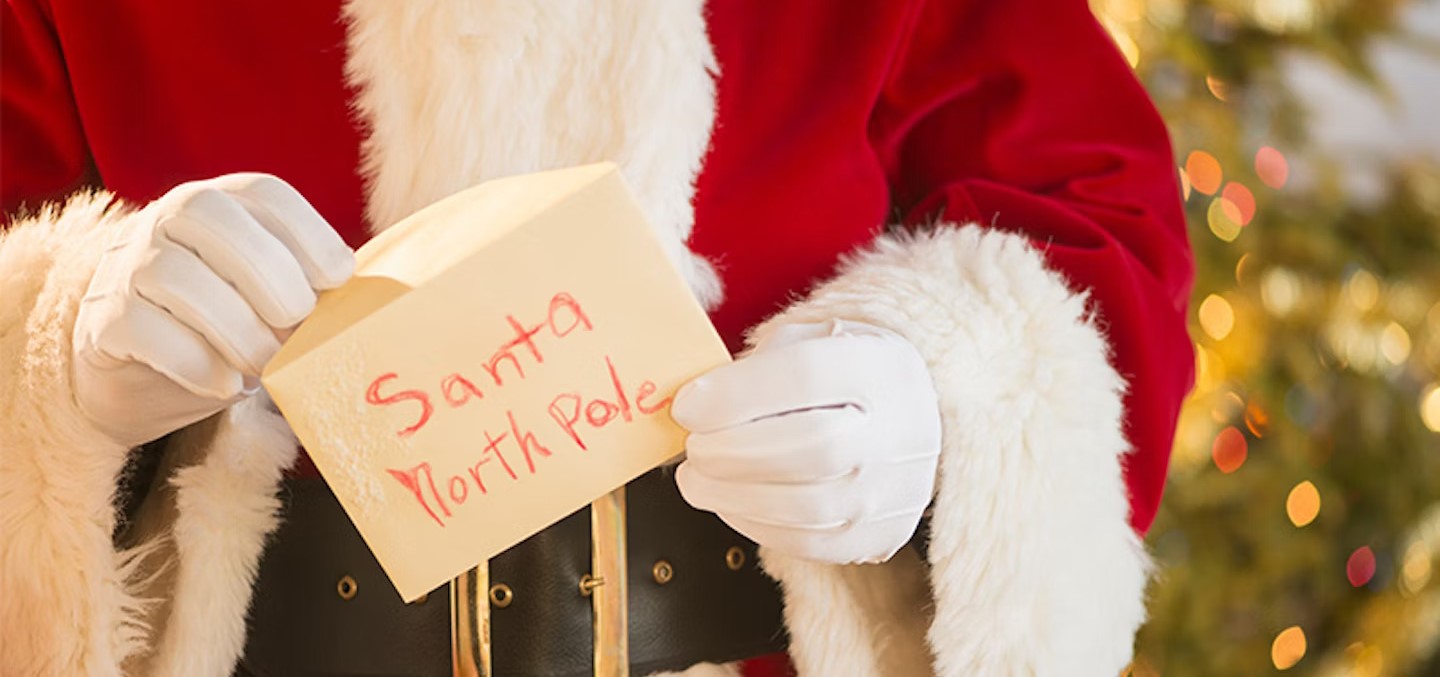 Santa
North Pole